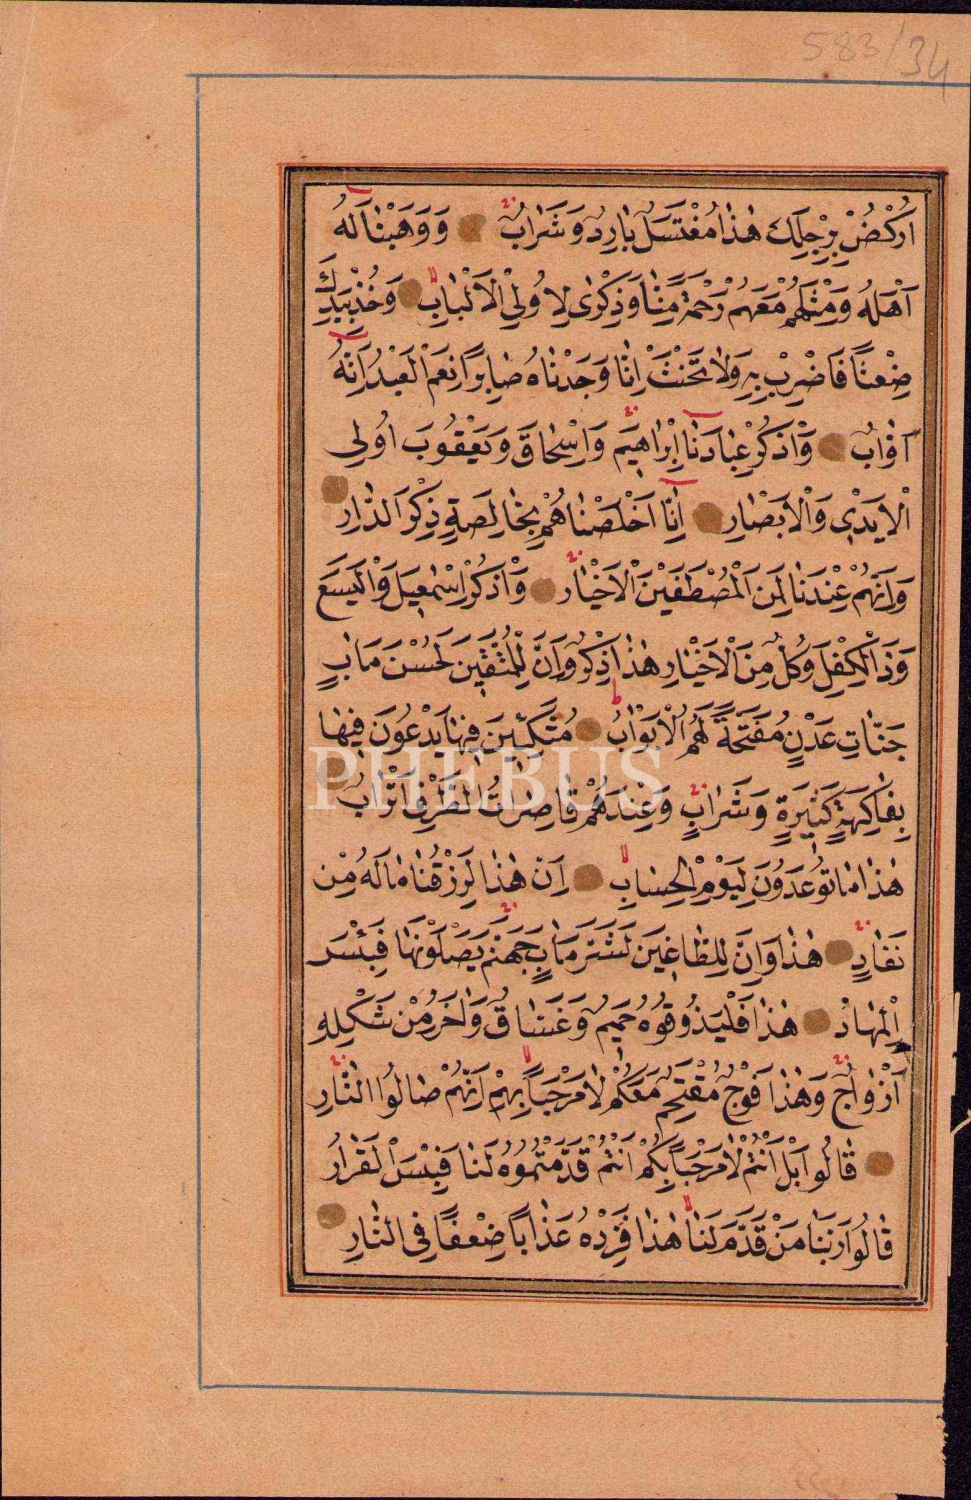 583/34
اُرْكُضْ بِرِجْلِكَ هٰذَا مُغْتَسَلٌ بَارِدٌ وَشَرَابٌ وَوَهَبْنَا لَهُ
اَهْلَهُ وَمِثْلَهُمْ مَعَهُمْ رَحْمَةً مِنَّا وَذِكْرٰى لِاُولِي الْاَلْبَابِ وَخُذْ بِيَدِكَ
ضِغْثًا فَاضْرِبْ بِهِ وَلَا تَحْنَثْ اِنَّا وَجَدْنَاهُ صَابِرًا نِعْمَ الْعَبْدُ اِنَّهُ
اَوَّابٌ وَاذْكُرْ عِبَادَنَا اِبْرَاهِيمَ وَاِسْحَاقَ وَيَعْقُوبَ اُولِي
الْاَيْدِي وَالْاَبْصَارِ اِنَّا اَخْلَصْنَاهُمْ بِخَالِصَةٍ ذِكْرَ الدَّارِ
وَاِنَّهُمْ عِنْدَنَا لَمِنَ الْمُصْطَفَيْنَ الْاَخْيَارِ وَاذْكُرْ اِسْمٰعِيلَ وَالْيَسَعَ
وَذَا الْكِفْلِ وَكُلٌّ مِنَ الْاَخْيَارِ هٰذَا ذِكْرٌ وَاِنَّ لِلْمُتَّقِينَ لَحُسْنَ مَاٰبٍ
جَنَّاتِ عَدْنٍ مُفَتَّحَةً لَهُمُ الْاَبْوَابُ مُتَّكِئِينَ فِيهَا يَدْعُونَ فِيهَا
بِفَاكِهَةٍ كَثِيرَةٍ وَشَرَابٍ وَعِنْدَهُمْ قَاصِرَاتُ الطَّرْفِ اَتْرَابٌ
هٰذَا مَا تُوعَدُونَ لِيَوْمِ الْحِسَابِ اِنَّ هٰذَا لَرِزْقُنَا مَا لَهُ مِنْ
نَفَادٍ هٰذَا وَاِنَّ لِلطَّاغِينَ لَشَرَّ مَاٰبٍ جَهَنَّمَ يَصْلَوْنَهَا فَبِئْسَ
الْمِهَادُ هٰذَا فَلْيَذُوقُوهُ حَمِيمٌ وَغَسَّاقٌ وَاٰخَرُ مِنْ شَكْلِهِ
اَزْوَاجٌ وَهٰذَا فَوْجٌ مُقْتَحِمٌ مَعَكُمْ لَا مَرْحَبًا بِهِمْ اِنَّهُمْ صَالُوا النَّارِ
قَالُوا بَلْ اَنْتُمْ لَا مَرْحَبًا بِكُمْ اَنْتُمْ قَدَّمْتُمُوهُ لَنَا فَبِئْسَ الْقَرَارُ
قَالُوا رَبَّنَا مَنْ قَدَّمَ لَنَا هٰذَا فَزِدْهُ عَذَابًا ضِعْفًا فِي النَّارِ
PHEBUS